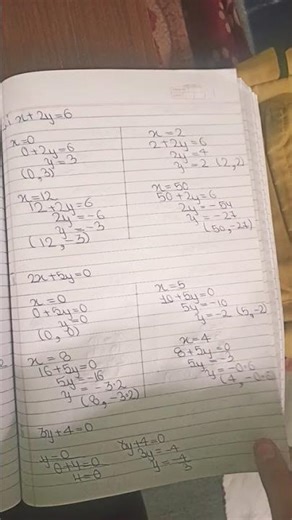 x+2y=6
x=0
0+2y=6
y=3
(0,3)
x=2
2+2y=6
2y=4
y=2 (2,2)
x=12
12+2y=6
2y=-6
y=-3
(12,-3)
x=50
50+2y=6
2y=-54
y=-27
(50,-27)
2x+5y=0
x=0
0+5y=0
y=0
(0,0)
x=5
10+5y=0
5y=-10
y=-2 (5,-2)
x=8
16+5y=0
5y=-16
y=-3.2
(8,-3.2)
x=4
8+5y=0
5y=-3
y=-0.6
3y+4=0
y=0
0+4=0
4=0
3y+4=0
3y=-4
y=-4/3